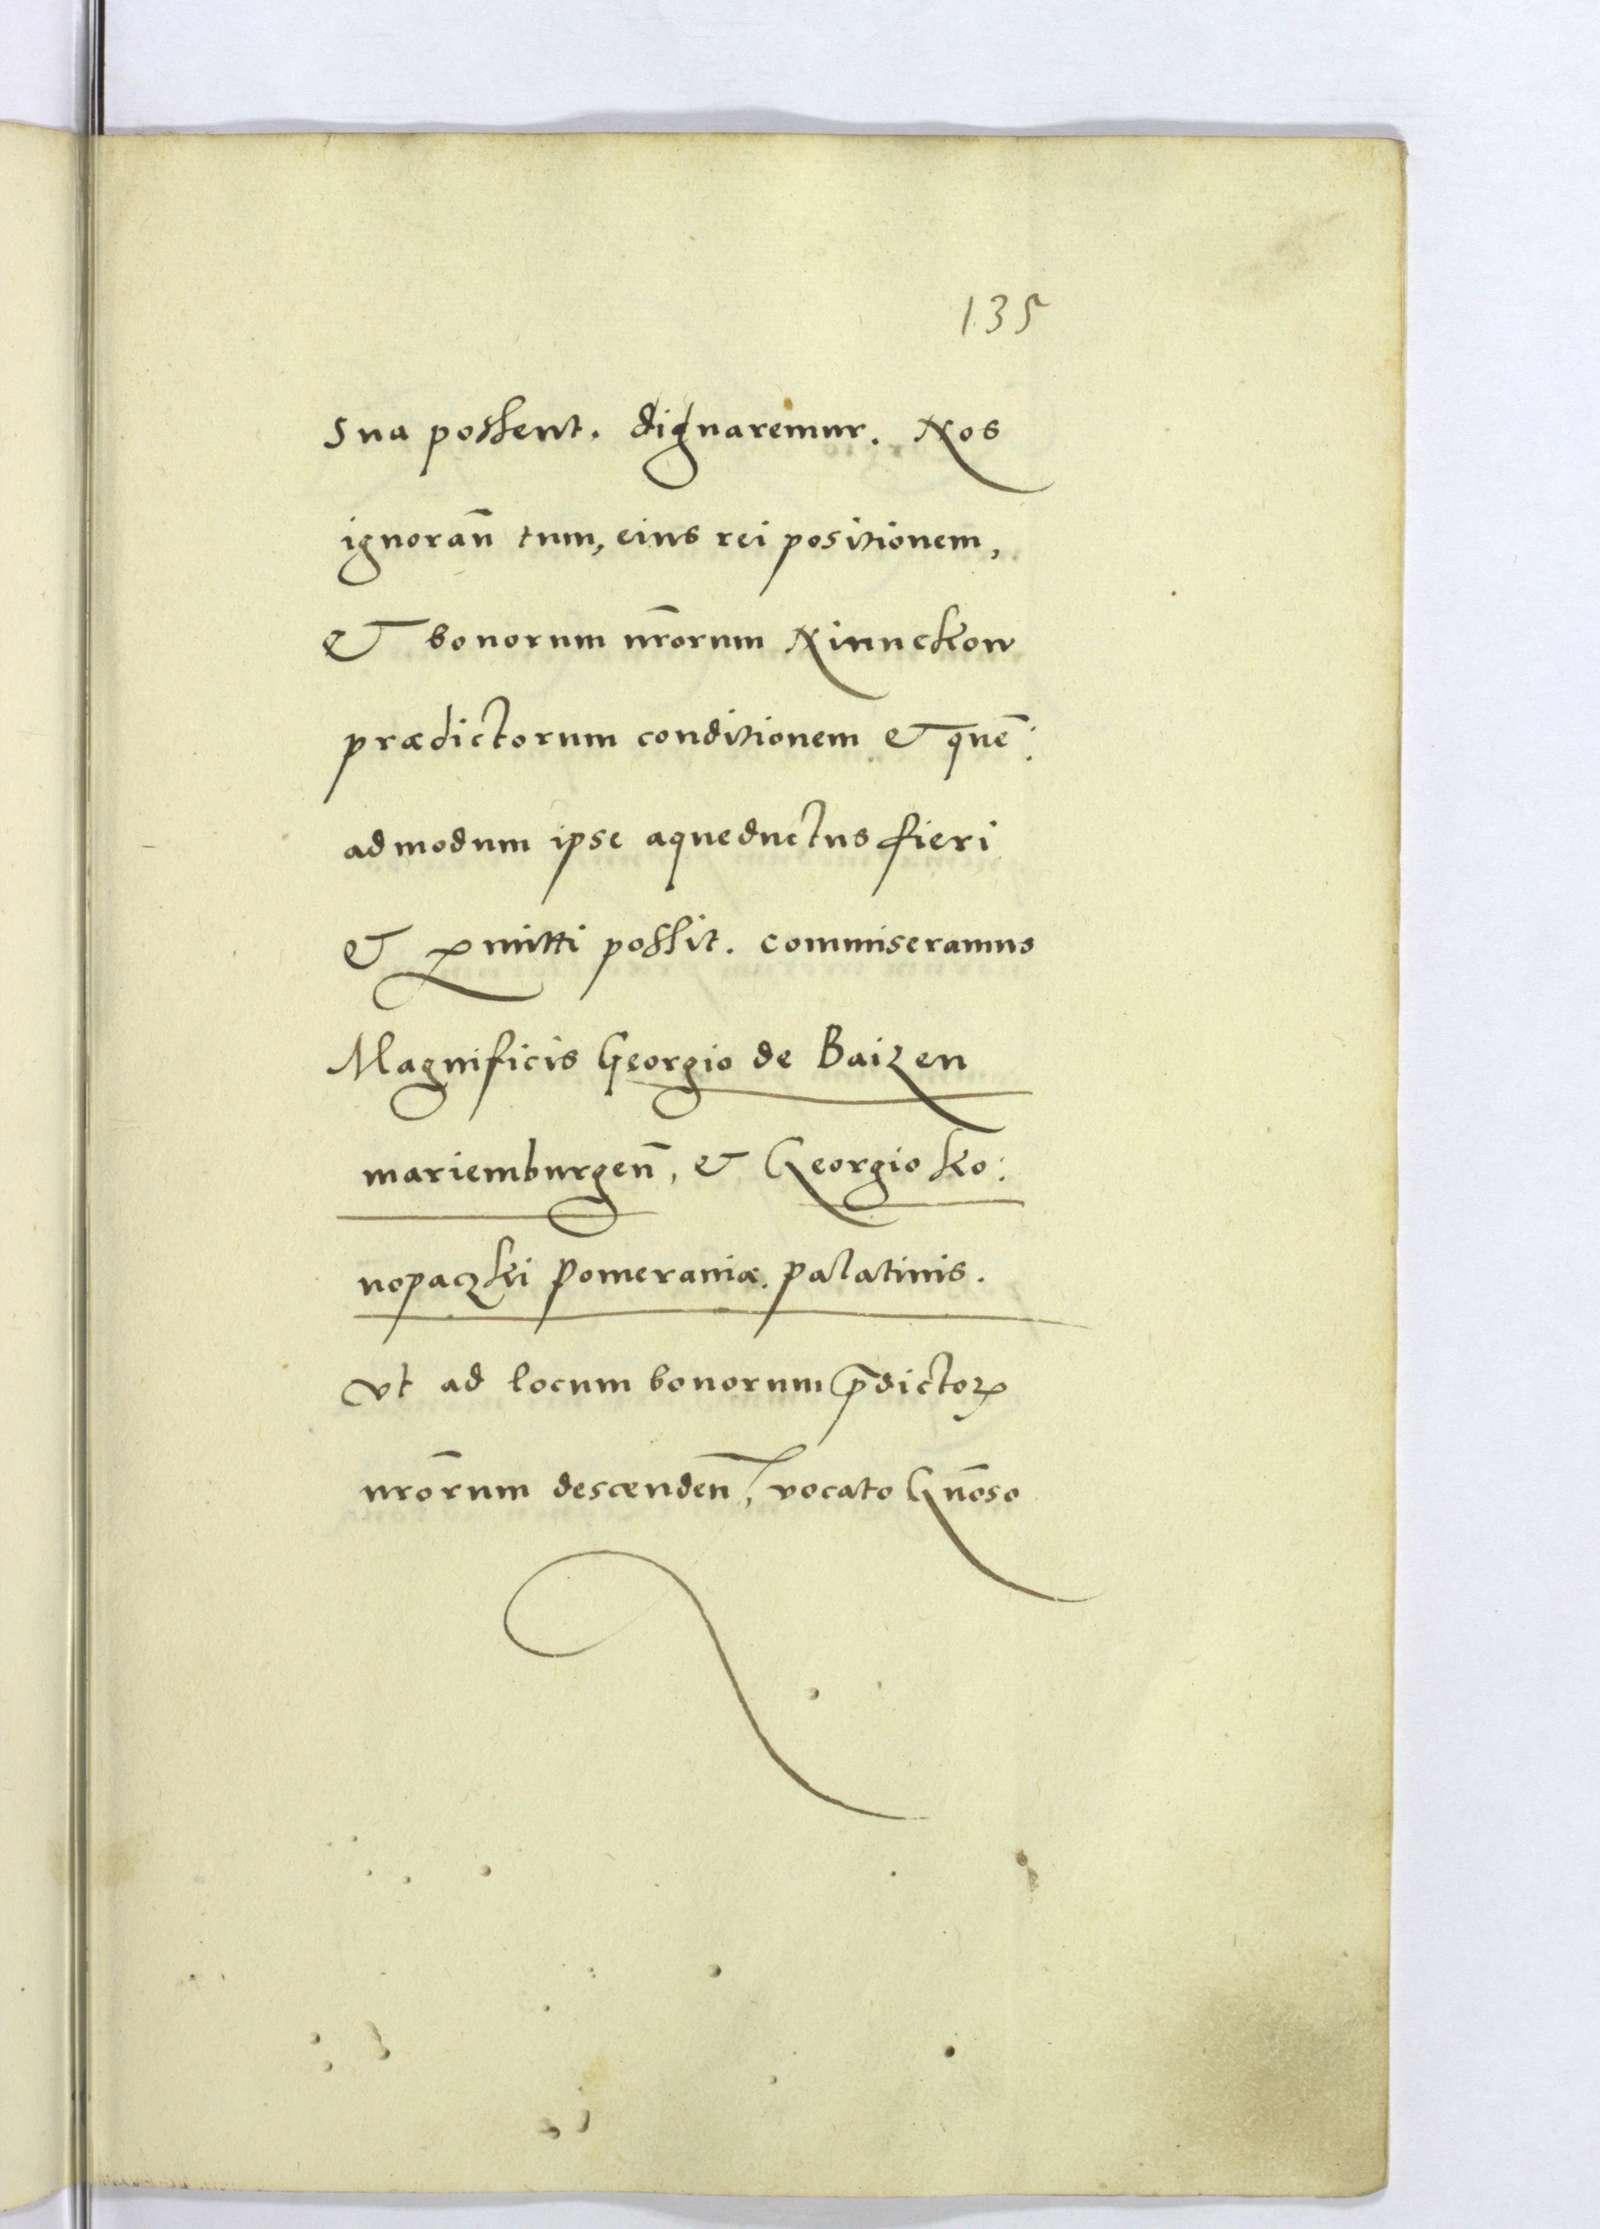 135
Sua possent. dignaremur. Nos
ignorañ tum, eius rei positionem,
& bonorum nr̄orum Ninnckow
prædictorum conditionem & quē:
admodum ipse aqueductus fieri
& ꝑmitti possit. commiseramus
Magnificis Georgio de Baizen
mariemburgeñ, & Georgio ko:
nopaczki Pomeraniæ. palatinis.
Vt ad locum bonorum p̄dictoꝝ
nr̄orum descendeñ, vocato Gn̄oso